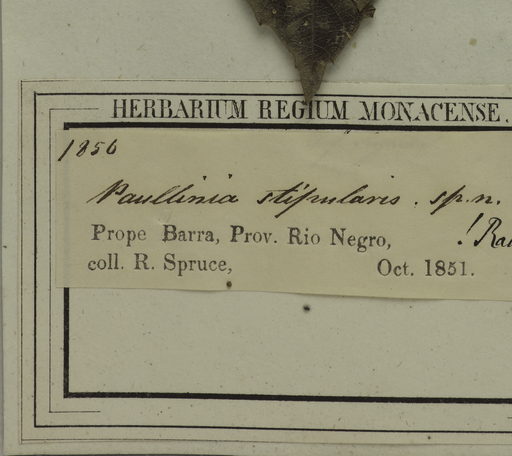 HERBARIUM REGIUM MONACENSE.
1850
Paullinia stipularis. sp. n.
Prope Barra, Prov. Rio Negro, ! Ra
coll. R. Spruce, Oct. 1851.